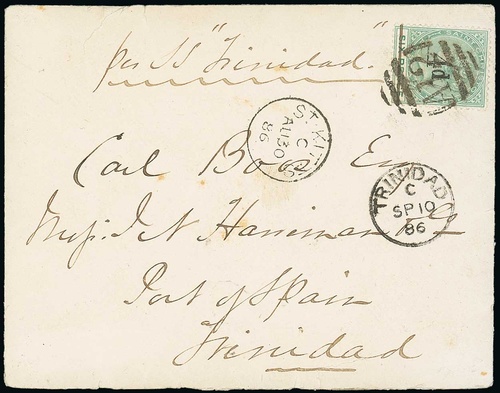 per SS "Trinidad."
4d
A12
ST. KITTS
C
AU 30
86
Carl Boos Esq
TRINIDAD
C
SP 10
86
Messrs. J N Harriman & Co
Port of Spain
Trinidad